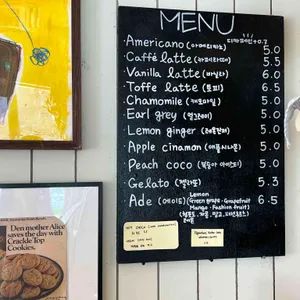 MENU
디카페인+0.7
Americano (아메리카노) 5.0
Caffé latte (카페라떼) 5.5
Vanilla latte (바닐라) 6.0
Toffe latte (토피) 6.5
Chamomile (캐모마일) 5.0
Earl grey (얼그레이) 5.0
Lemon ginger (레몬진저) 5.0
Apple cinamon (애플시나몬) 5.0
Peach coco 5.0
Gelato (젤라또) 5.3
Ade (에이드) Lemon 6.5
(Green grape · Grapefruit
Mango · Fashion fruit)
Den mother Alice
saves the day with
Crackle Top
Cookies.